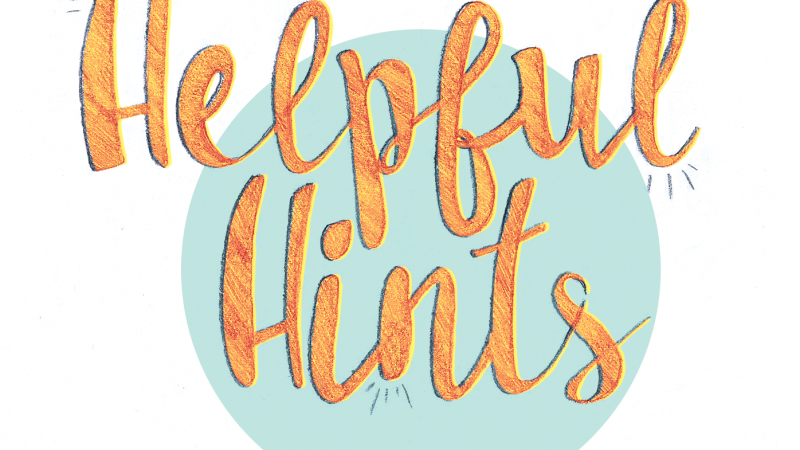 Helpful
Hints